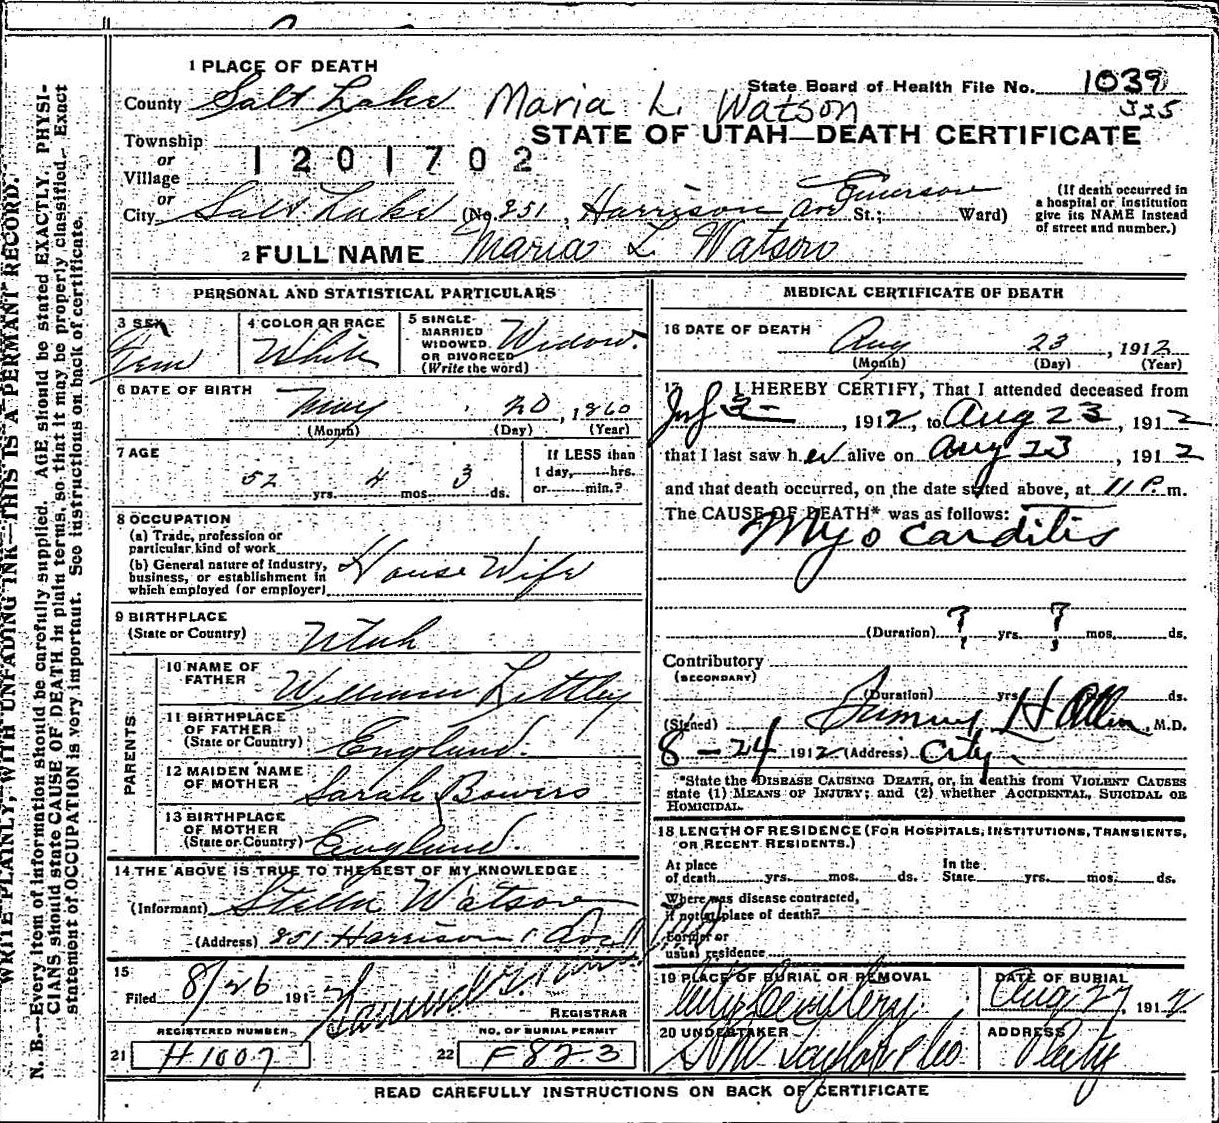 1 PLACE OF DEATH
State Board of Health File No. 1039
County Salt Lake
Maria L. Watson
325
Township
STATE OF UTAH—DEATH CERTIFICATE
or
1201702
Village
or
City Salt Lake (No. 851, Harrison Ave St.; Ward)
Emerson
(If death occurred in
a hospital or institution
give its NAME instead
of street and number.)
2 FULL NAME Maria L Watson
PERSONAL AND STATISTICAL PARTICULARS
3 SEX
Fem
4 COLOR OR RACE
White
5 SINGLE-
MARRIED
WIDOWED
OR DIVORCED
(Write the word)
Widow.
6 DATE OF BIRTH
May 20, 1860
(Month) (Day) (Year)
7 AGE
52 yrs. 4 mos. 3 ds.
If LESS than
1 day, hrs.
or min.?
8 OCCUPATION
(a) Trade, profession or
particular kind of work
(b) General nature of Industry,
business, or establishment in
which employed (or employer)
House Wife
9 BIRTHPLACE
(State or Country) Utah
PARENTS
10 NAME OF
FATHER William Littley
11 BIRTHPLACE
OF FATHER
(State or Country) England.
12 MAIDEN NAME
OF MOTHER Sarah Bowers
13 BIRTHPLACE
OF MOTHER
(State or Country) England.
14 THE ABOVE IS TRUE TO THE BEST OF MY KNOWLEDGE
(Informant) Stella Watson
(Address) 851 Harrison Ave
15
Filed 8/26 191
REGISTRAR
REGISTERED NUMBER
21 H1007
NO. OF BURIAL PERMIT
22 F823
MEDICAL CERTIFICATE OF DEATH
16 DATE OF DEATH
Aug 23, 1912
(Month) (Day) (Year)
17 I HEREBY CERTIFY, That I attended deceased from
, 1912, to Aug 23, 1912
that I last saw her alive on Aug 23, 1912
and that death occurred, on the date stated above, at 11 P. m.
The CAUSE OF DEATH* was as follows:
Myocarditis
(Duration) ? yrs. ? mos. ds.
Contributory
(SECONDARY)
(Duration) yrs. mos. ds.
(Signed) H Allen, M.D.
8-24 1912 (Address) City
*State the DISEASE CAUSING DEATH, or, in deaths from VIOLENT CAUSES
state (1) MEANS OF INJURY; and (2) whether ACCIDENTAL, SUICIDAL OR
HOMICIDAL.
18 LENGTH OF RESIDENCE (FOR HOSPITALS, INSTITUTIONS, TRANSIENTS,
OR RECENT RESIDENTS.)
At place
of death yrs. mos. ds.
In the
State yrs. mos. ds.
Where was disease contracted,
if not at place of death?
Former or
usual residence
19 PLACE OF BURIAL OR REMOVAL
City Cemetery
DATE OF BURIAL
Aug 27, 1912
20 UNDERTAKER
S M Taylor & Co
ADDRESS
City
READ CAREFULLY INSTRUCTIONS ON BACK OF CERTIFICATE
WRITE PLAINLY, WITH UNFADING INK—THIS IS A PERMANT RECORD.
N. B.—Every item of information should be carefully supplied. AGE should be stated EXACTLY. PHYSI-
CIANS should state CAUSE OF DEATH in plain terms, so that it may be properly classified. Exact
statement of OCCUPATION is very important. See instructions on back of certificate.